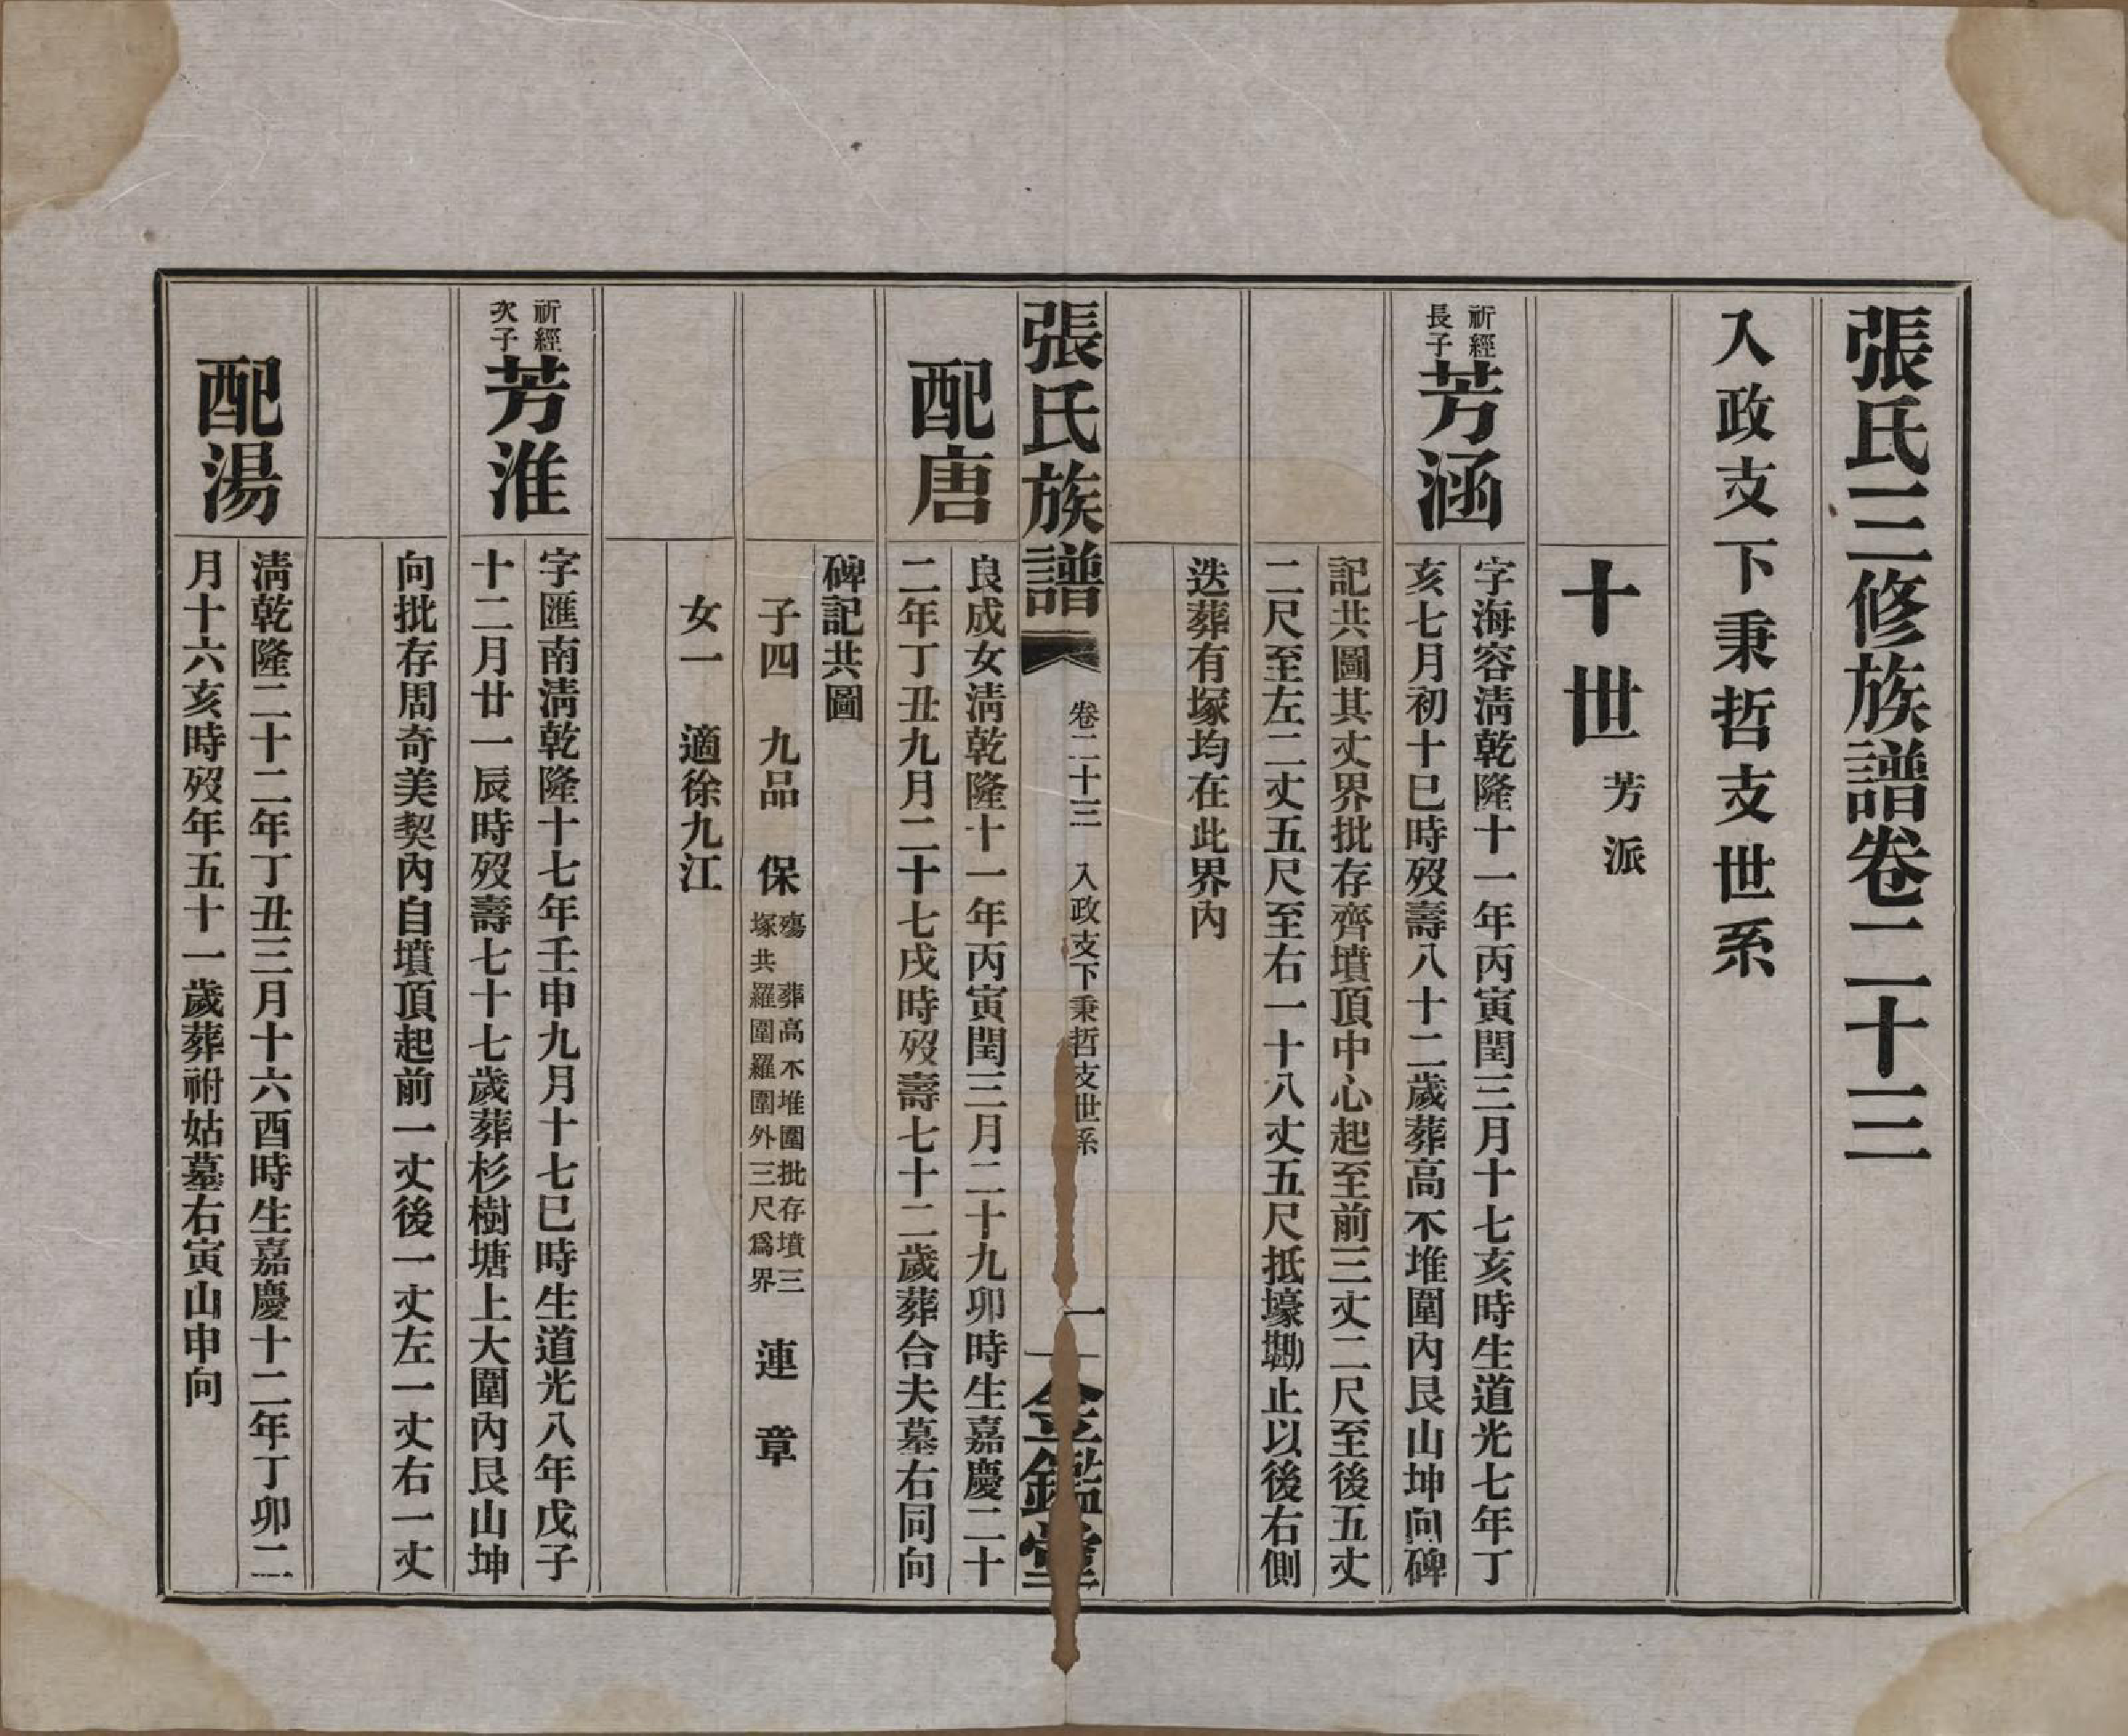 張氏三修族譜卷二十三
入政支下秉哲支世系
十世 芳派
祈經長子
芳涵
字海容淸乾隆十一年丙寅閏三月十七亥時生道光七年丁
亥七月初十巳時歿壽八十二歲葬高不堆圍內艮山坤向碑
記共圖其丈界批存齊墳頂中心起至前三丈二尺至後五丈
二尺至左二丈五尺至右一十八丈五尺抵壕墈止以後右側
迭葬有塚均在此界內
張氏族譜 卷二十三 入政支下秉哲支世系 一 金鑑堂
配唐
良成女淸乾隆十一年丙寅閏三月二十九卯時生嘉慶二十
二年丁丑九月二十七戌時歿壽七十二歲葬合夫墓右同向
碑記共圖
子四 九品 保 殤葬高不堆圍批存墳三塚共羅圍羅圍外三尺爲界 連 章
女一 適徐九江
祈經次子
芳淮
字匯南淸乾隆十七年壬申九月十七巳時生道光八年戊子
十二月廿一辰時歿壽七十七歲葬杉樹塘上大圍內艮山坤
向批存周奇美契內自墳頂起前一丈後一丈左一丈右一丈
配湯
淸乾隆二十二年丁丑三月十六酉時生嘉慶十二年丁卯二
月十六亥時歿年五十一歲葬祔姑墓右寅山申向